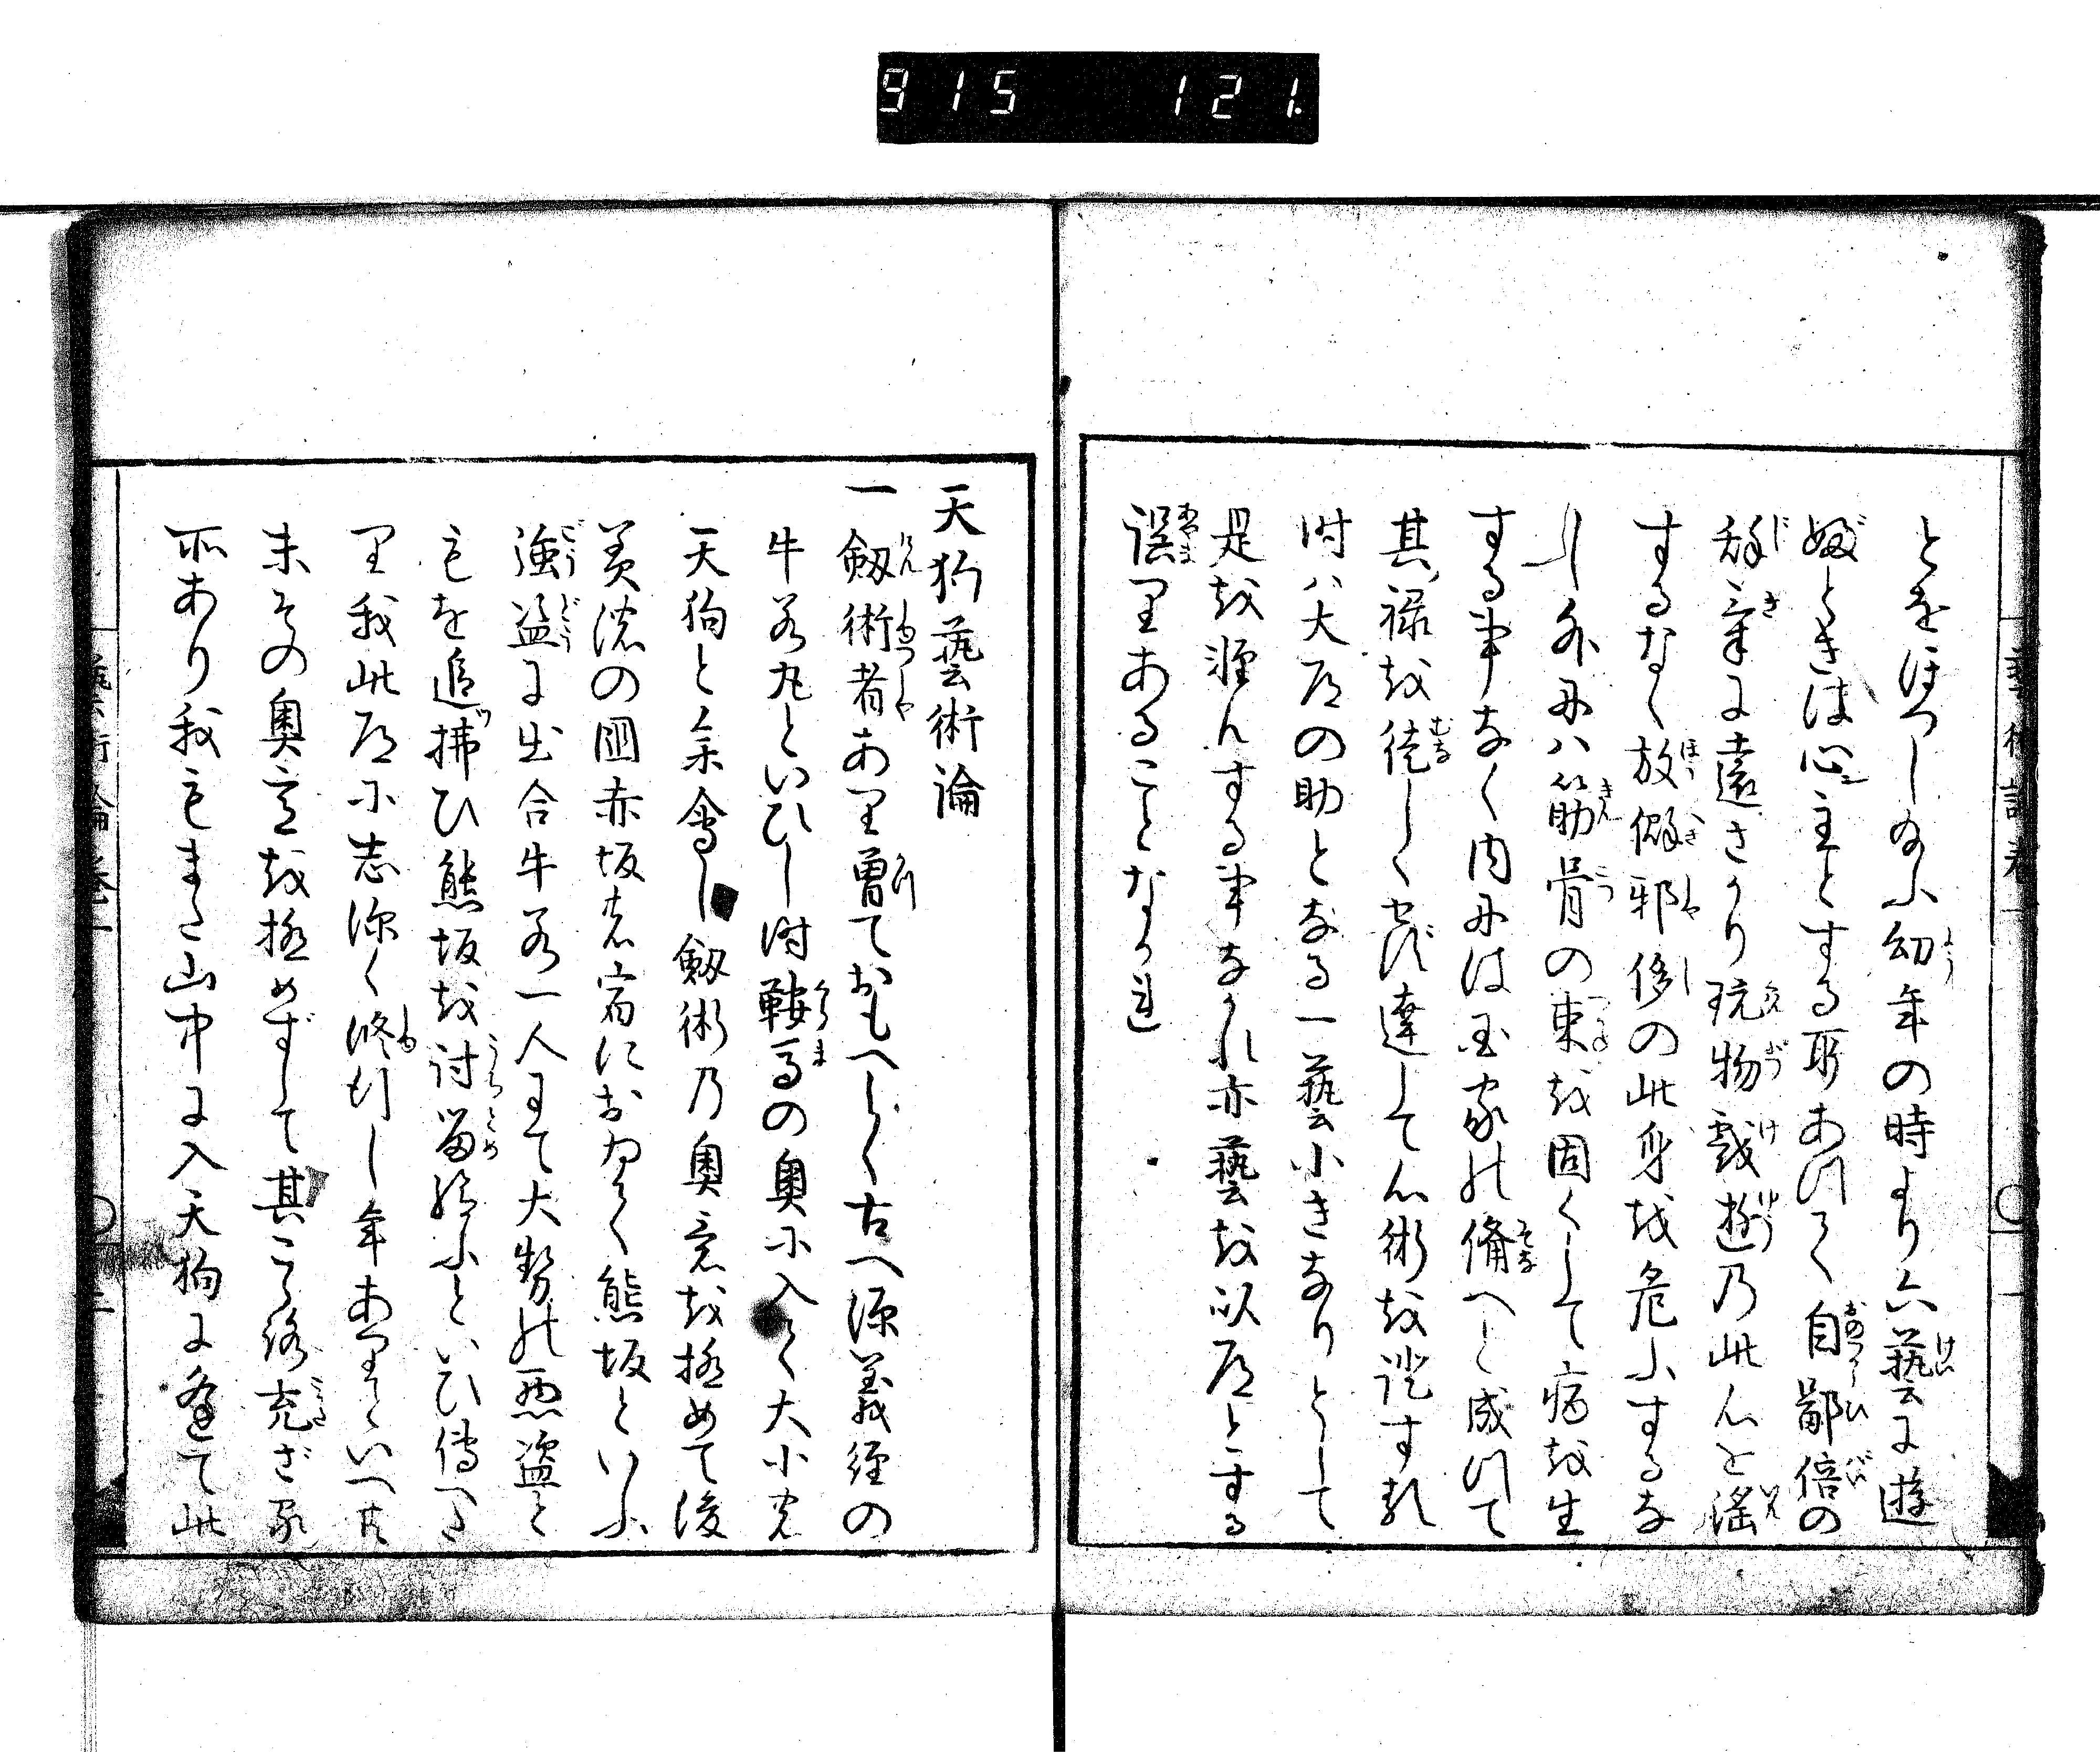 915 121.
とをほつし給ふ幼年の時より六藝に遊
ぶときは心主とする所あつて自鄙倍の
辞氣に遠さかり玩物戯遊の此心を淫
するなく放僻邪侈の此身を危ふするな
し外には筋骨の束を固くして病を生
する事なく内には国家の備へと成つて
其禄を徒しくせず達して心術を證する
時は大道の助となる一藝小きなりとして
是を軽んする事なかれ亦藝を以道とする
誤りあることなかれ
天狗藝術論
一劔術者あり曽ておもへらく古へ源義経の
牛若丸といひし時鞍馬の奥に入て大小の
天狗と參會し劔術の奥意を極めて後
美濃の国赤坂の宿において熊坂といふ
強盗に出合牛若一人にて大勢の悪盗と
もを追拂ひ熊坂を討留給ふといひ傳へた
り我此道に志深く修行し年ありといへ共
未その奥意を極めずして其こゝろ充ざる
所あり我もまた山中に入天狗に逢て此